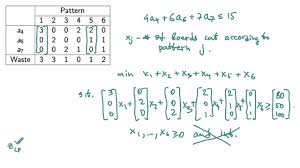 Pattern
1 2 3 4 5 6
a4 3 0 0 2 2 0
a6 0 2 0 0 1 1
a7 0 0 2 1 0 1
Waste 3 3 1 0 1 2
4a4 + 6a6 + 7a7 ≤ 15
xj - # of boards cut according to
pattern j.
min x1 + x2 + x3 + x4 + x5 + x6
s.t. [3 0 0] x1 + [0 2 0] x2 + [0 0 2] x3 + [2 0 1] x4 + [2 1 0] x5 + [0 1 1] x6 ≥ [80 50 100]
x1, ..., x6 ≥ 0 and int.